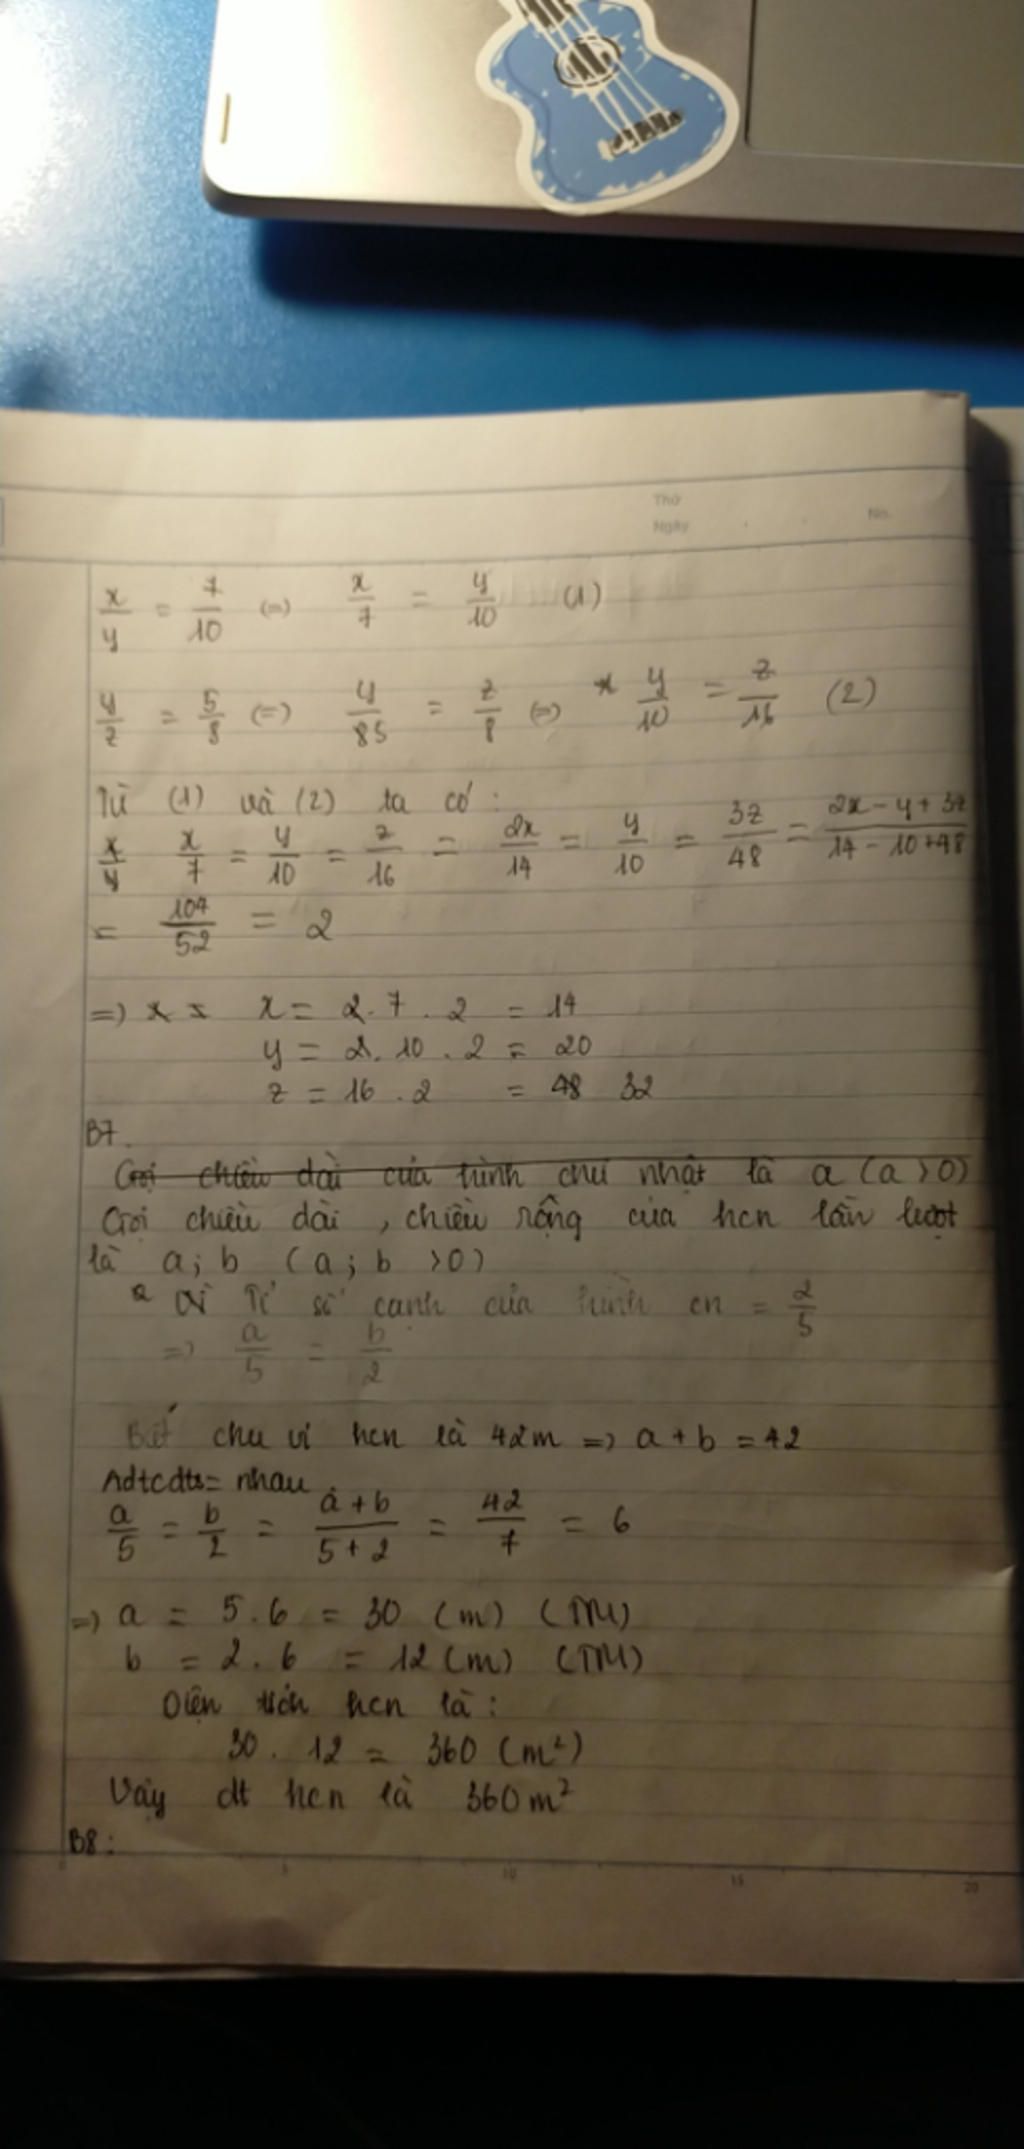 Thứ
Ngày No.
x/y = 7/10 (=) x/7 = y/10 (1)
y/z = 5/8 (=) y/85 = z/8 (=) x y/10 = z/16 (2)
Từ (1) và (2) ta có:
x/y x/7 = y/10 = z/16 = 2x/14 = y/10 = 3z/48 = 2x - y + 3z/14 - 10 + 48
= 104/52 = 2
=) x = x = 2.7.2 = 14
y = 2.10.2 = 20
z = 16.2 = 48 32
B7.
Gọi chiều dài của hình chữ nhật là a (a > 0)
Gọi chiều dài, chiều rộng của hcn lần lượt
là a; b (a; b > 0)
Vì Tỉ số cạnh của hình cn = 2/5
=) a/5 = b/2
Biết chu vi hcn là 42m =) a + b = 42
Adtcdts= nhau
a/5 = b/2 = a + b/5 + 2 = 42/7 = 6
=) a = 5.6 = 30 (m) (TM)
b = 2.6 = 12 (m) (TM)
Diện tích hcn là:
30.12 = 360 (m²)
Vậy dt hcn là 360m²
B8:
0 5 10 15 20